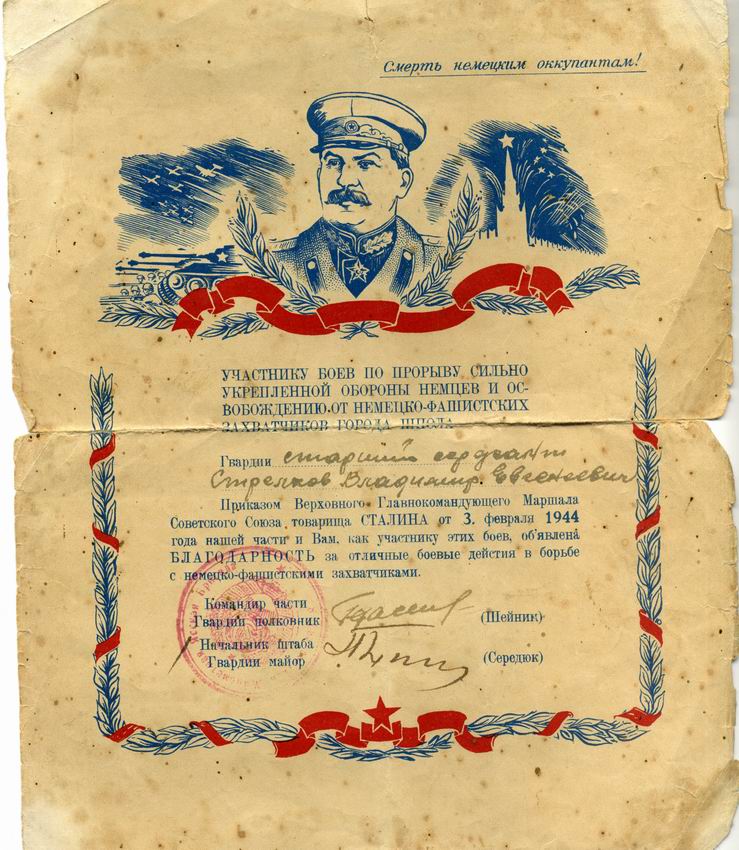 Смерть немецким оккупантам!
УЧАСТНИКУ БОЕВ ПО ПРОРЫВУ СИЛЬНО
УКРЕПЛЕННОЙ ОБОРОНЫ НЕМЦЕВ И ОС-
ВОБОЖДЕНИЮ ОТ НЕМЕЦКО-ФАШИСТСКИХ
ЗАХВАТЧИКОВ ГОРОДА ШПОЛА
Гвардии старший сержант
Стрелков Владимир Евсеевич
Приказом Верховного Главнокомандующего Маршала
Советского Союза товарища СТАЛИНА от 3. февраля 1944
года нашей части и Вам, как участнику этих боев, об'явлена
БЛАГОДАРНОСТЬ за отличные боевые дейстия в борьбе
с немецко-фашистскими захватчиками.
Командир части
Гвардии полковник (Шейник)
Начальник штаба
Гвардии майор (Середюк)